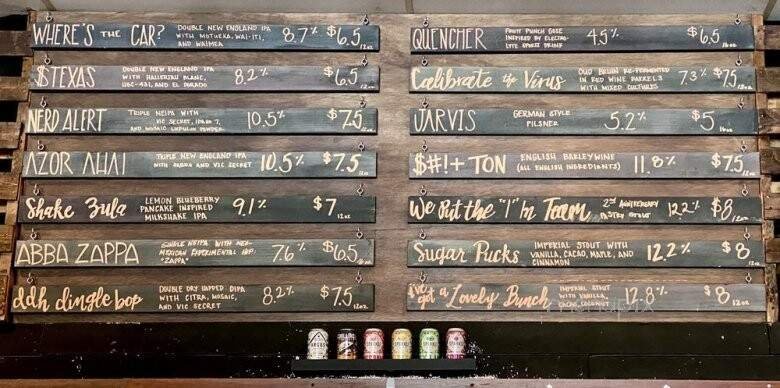 WHERE'S THE CAR? DOUBLE NEW ENGLAND IPA 8.7% $6.5
WITH MOTUEKA, WAI-ITI,
AND WAIMEA 12oz
$TEXAS DOUBLE NEW ENGLAND IPA 8.2% $6.5
WITH HALLERTAU BLANC,
AND EL DORADO 12oz
NERD ALERT TRIPLE NEIPA WITH 10.5% $7.5
VIC SECRET,
AND MOSAIC LUPULIN POWDER 12oz
AZOR AHAI TRIPLE NEW ENGLAND IPA 10.5% $7.5
WITH AND VIC SECRET 12oz
Shake Zula LEMON BLUEBERRY 9.1% $7
PANCAKE INSPIRED
MILKSHAKE IPA 12oz
ABBA ZAPPA SINGLE NEIPA WITH NEW 7.6% $6.5
MEXICAN EXPERIMENTAL HOP:
"ZAPPA"
ddh dingle bop DOUBLE DRY HOPPED DIPA 8.2% $7.5
WITH CITRA, MOSAIC,
AND VIC SECRET 12oz
QUENCHER FRUIT PUNCH GOSE 4.5% $6.5
INSPIRED BY ELECTRO-
LYTE SPORTS DRINK 12oz
Calibrate the Virus OUD BRUIN RE-FERMENTED 7.3% $7.5
IN RED WINE BARRELS
WITH MIXED CULTURES 12oz
JARVIS GERMAN STYLE 5.2% $5
PILSNER
$#!+ TON ENGLISH BARLEYWINE 11.8% $7.5
(ALL ENGLISH INGREDIENTS) 12oz
We Put the "I" in Team 2nd ANNIVERSARY 12.2% $8
PASTRY STOUT 12oz
Sugar Pucks IMPERIAL STOUT WITH 12.2% $8
VANILLA, CACAO, MAPLE, AND
CINNAMON 12oz
I've got a Lovely Bunch IMPERIAL STOUT 12.8% $8
WITH VANILLA,
CACAO, COCONUT 12oz